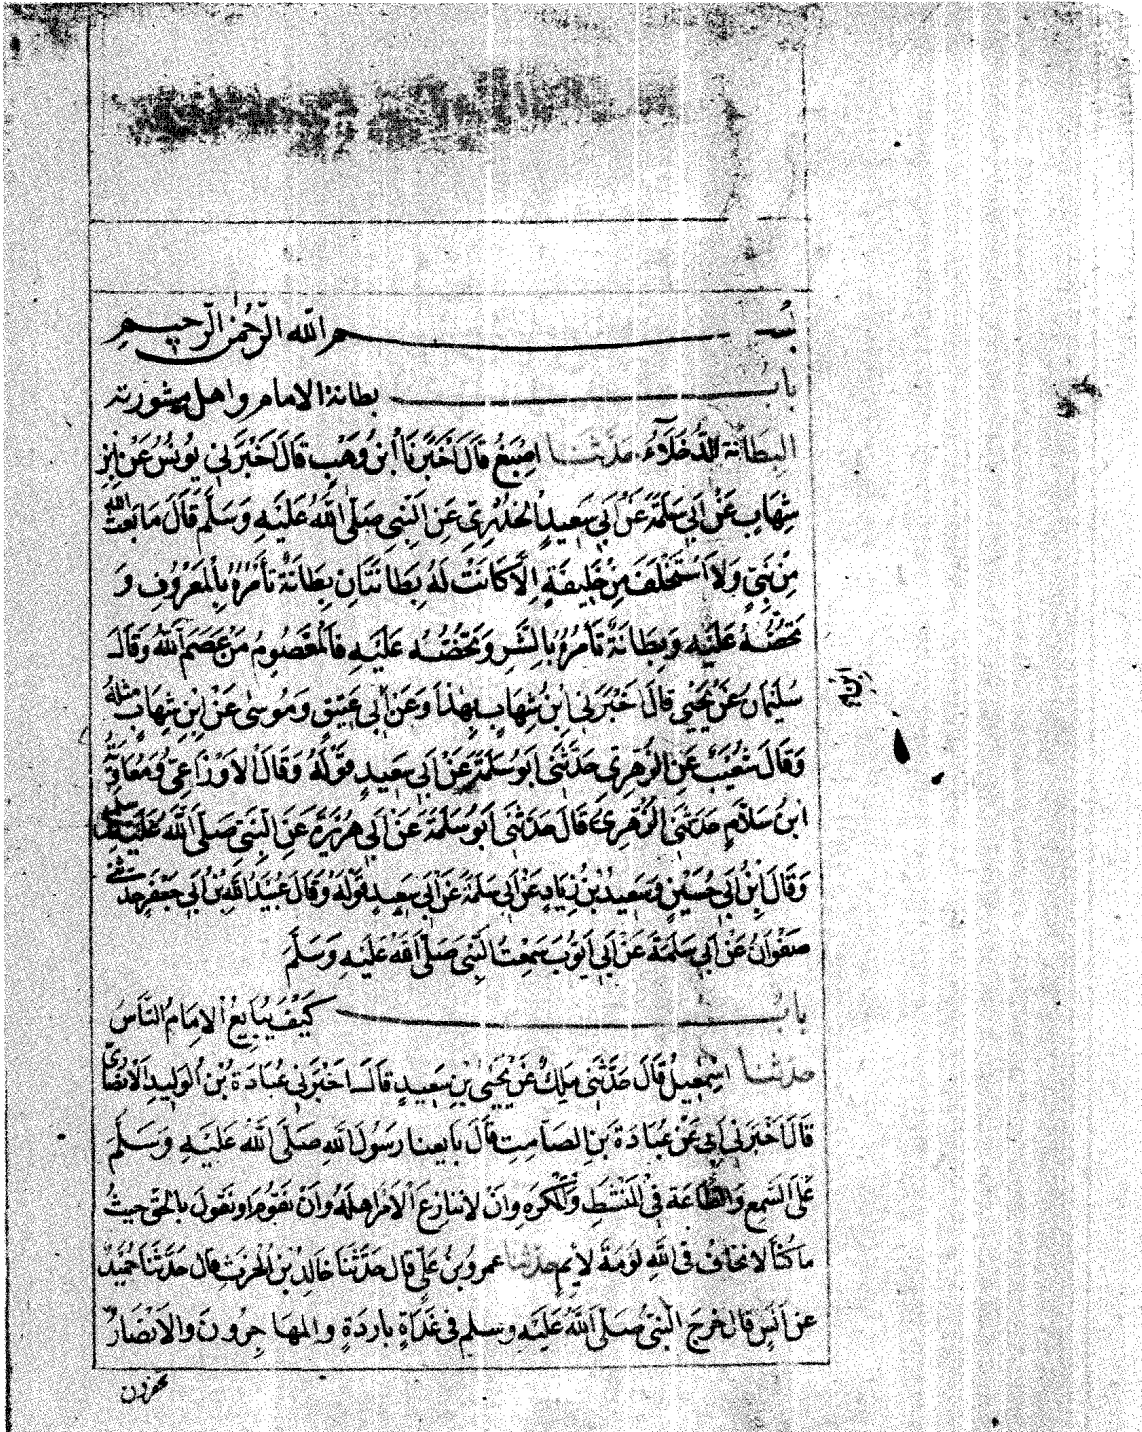 بسم الله الرحمن الرحيم
باب بطانة الامام واهل مشورته
البطانة الدُّخَلَآءُ حدثنا اصبَغُ قَالَ اَخْبَرَنَا ابنُ وَهْبٍ قَالَ اَخْبَرَنِي يُونُسُ عَنْ ابْنِ
شِهَابٍ عَنْ اَبِي سَلَمَةَ عَنْ اَبِي سَعِيدٍ الخُدْرِيِّ عَنِ النَّبِيِّ صَلَّى اللَّهُ عَلَيْهِ وَسَلَّمَ قَالَ مَا بَعَثَ اللهُ
مِنْ نَبِيٍّ وَلَا اسْتَخْلَفَ مِنْ خَلِيفَةٍ اِلَّا كَانَتْ لَهُ بِطَانَتَانِ بِطَانَةٌ تَأمُرُهُ بِالْمَعْرُوفِ وَ
تَحُضُّهُ عَلَيْهِ وَبِطَانَةٌ تَأمُرُهُ بِالشَّرِ وَتَحُضُّهُ عَلَيْهِ فَالْمَعْصُومُ مَنْ عَصَمَ اللَّهُ وَقَالَ
سُلَيْمَانُ عَنْ يَحْيَى قَالَ اَخْبَرَنِي ابْنُ شِهَابٍ بِهٰذَا وَعَنْ اَبِي عَتِيقٍ وَمُوسَى عَنْ ابْنِ شِهَابٍ مِثْلَهُ
وَقَالَ شُعَيْبٌ عَنِ الزُّهْرِيِّ حَدَّثَنِي ابو سَلَمَةَ عَنْ اَبِي سَعِيدٍ قَوْلَهُ وَقَالَ الاَوْزَاعِيُّ وَمُعَاوِيَةُ
ابنُ سَلَّامٍ حَدَّثَنِي الزُّهْرِيُّ قَالَ حَدَّثَنِي اَبُو سَلَمَةَ عَنْ اَبِي هُرَيْرَةَ عَنِ النَّبِيِّ صَلَّى اللَّهُ عَلَيْهِ وسلم
وَقَالَ ابْنُ اَبِي حُسَيْنٍ وَسَعِيدُ بْنُ زِيَادٍ عَنْ اَبِي سَلَمَةَ عَنْ اَبِي سَعِيدٍ قَوْلَهُ وَقَالَ عُبَيْدُ اللهِ بْنُ اَبِي جَعْفَرٍ حَدَّثَنِي
صَفْوَانُ عَنْ اَبِي سَلَمَةَ عَنْ اَبِي اَيُّوبَ سَمِعْتُ النَّبِيَّ صَلَّى اللَّهُ عَلَيْهِ وَسَلَّمَ
باب كَيْفَ يُبَايِعُ الاِمَامُ النَّاسَ
حدثنا اِسْمٰعِيلُ قَالَ حَدَّثَنِي مٰلِكٌ عَنْ يَحْيَى بْنِ سَعِيدٍ قَالَ اَخْبَرَنِي عُبَادَةُ بْنُ الوَلِيدِ الاَنْصَارِيُّ
قَالَ اَخْبَرَنِي اَبِي عَنْ عُبَادَةَ بْنِ الصَامِتِ قَالَ بايعنا رَسُولَ اللهِ صَلَّى اللَّهُ عَلَيْهِ وَسَلَّمَ
عَلَى السَّمعِ وَالطَّاعَةِ فِي المَنْشَطِ وَالمَكْرَهِ وان لا ننازع الْاَمْرَ اهلَهُ وَاَنْ نَقُومَ او نَقُولَ بالحقِّ حيثُ
ما كُنَّا لا نَخَافُ في اللَّهِ لَوْمَةَ لائِمٍ حدثنا عمرو بنُ عَلِيٍّ قال حَدَّثَنَا خَالِدُ بْنُ الحرث قال حَدَّثَنَا حُمَيْدٌ
عن اَنَسٍ قال خرج النبيُّ صَلَّى اللَّهُ عَلَيْهِ وسلم في غَدَاةٍ باردَةٍ والمهاجِرُونَ والاَنْصَارُ
يحفرون